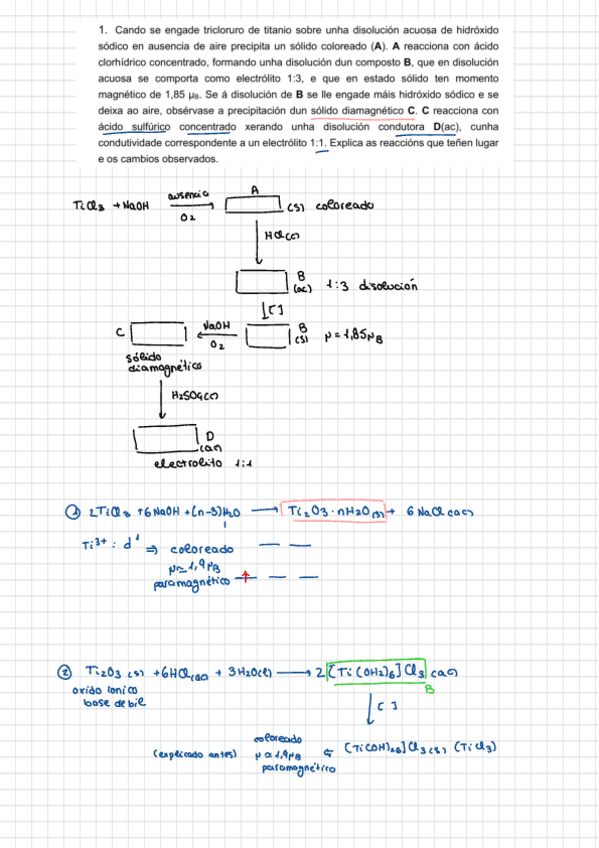 1. Cando se engade tricloruro de titanio sobre unha disolución acuosa de hidróxido
sódico en ausencia de aire precipita un sólido coloreado (A). A reacciona con ácido
clorhídrico concentrado, formando unha disolución dun composto B, que en disolución
acuosa se comporta como electrólito 1:3, e que en estado sólido ten momento
magnético de 1,85 μB. Se á disolución de B se lle engade máis hidróxido sódico e se
deixa ao aire, obsérvase a precipitación dun sólido diamagnético C. C reacciona con
ácido sulfúrico concentrado xerando unha disolución condutora D(ac), cunha
condutividade correspondente a un electrólito 1:1. Explica as reaccións que teñen lugar
e os cambios observados.
TiCl3 + NaOH
ausencia
O2
A
(s) coloreado
HCl(c)
B
(ac) 1:3 disolución
[C]
C
NaOH
O2
B
(s) μ = 1,85μB
sólido
diamagnético
H2SO4(c)
D
(ac)
electrolito 1:1
① 2TiCl3 + 6NaOH + (n-3)H2O → Ti2O3·nH2O(s) + 6 NaCl (ac)
Ti3+ : d1 ⇒ coloreado
μ≃1,9μB
paramagnético
② Ti2O3 (s) + 6HCl(ac) + 3H2O(l) → 2 [Ti(OH2)6]Cl3 (ac)
óxido iónico
base débil
B
[ ]
coloreado
(explicado antes) μ≃1,9μB ⇐ [Ti(OH)26]Cl3(s) (TiCl3)
paramagnético